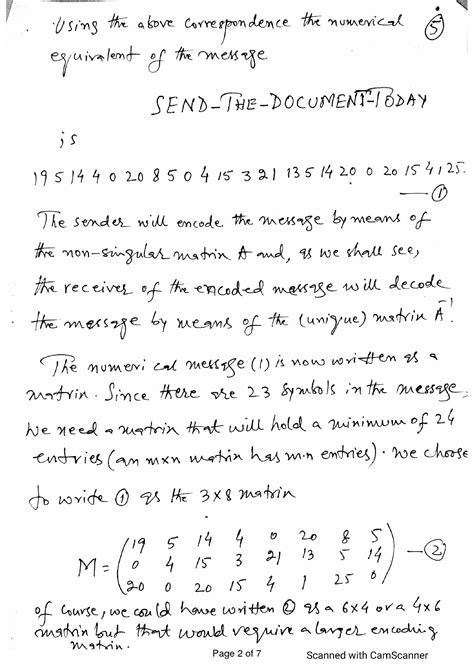 Using the above correspondence the numerical
⑤
equivalent of the message
SEND_THE_DOCUMENT_TODAY
is
19 5 14 4 0 20 8 5 0 4 15 3 21 13 5 14 20 0 20 15 4 1 25.
— ①
The sender will encode the message by means of
the non-singular matrix A and, as we shall see,
the receiver of the encoded message will decode
the message by means of the (unique) matrix A⁻¹
The numerical message (1) is now written as a
matrix. Since there are 23 symbols in the message,
we need a matrix that will hold a minimum of 24
entries (an mxn matrix has m.n entries). we choose
to write ① as the 3x8 matrix
19 5 14 4 0 20 8 5
M = 0 4 15 3 21 13 5 14 — ②
20 0 20 15 4 1 25 0
of course, we could have written ② as a 6x4 or a 4x6
matrix but that would require a larger encoding
matrix.
Page 2 of 7
Scanned with CamScanner